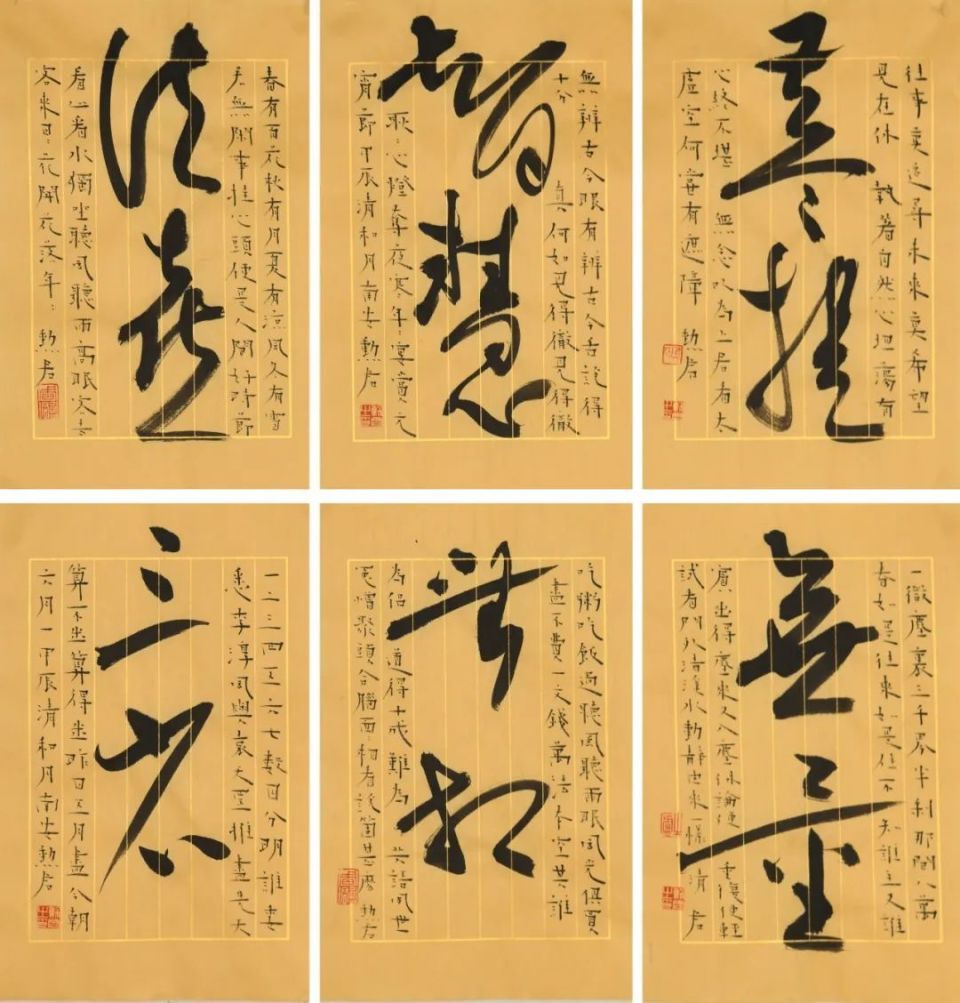 菩提
往事莫追尋未來莫希望
見在休執著自然心坦蕩有
心終不堪無念以為上君看太
虛空何嘗有遮障 勲居
智慧
無辨古今眼有辨古今舌說得
十分真何如見得徹見得徹
心燈奪夜寒年年宴賞元
宵節甲辰清和月南安勲居
法喜
春有百花秋有月夏有涼風冬有雪
若無閑事挂心頭便是人間好時節
看山看水獨坐聽風聽雨高眠客去
客來日日花開花落年年 勲居
無
一微塵裏三千界半刹那間八萬
春如是往來如是住不知誰主又誰
賓出得塵來又入塵休論便重復便輕
試看門外清溪水動靜由來一樣清 君
無相
吃粥吃飯過聽風聽雨眠風光俱買
盡不費一文錢萬法本空其誰
為侶道得十成難為共語
冤憎聚頭合腦面面相看說箇甚麼 勲居
三
一二三四五六七數目分明誰委
悉李淳風與袁天罡推盡先天
算不出算得出昨日五月盡今朝
六月一甲辰清和月南安勲居